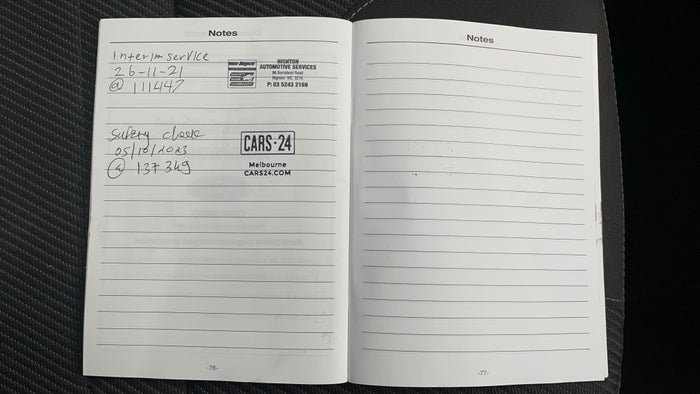 Notes
Interim service
26-11-21
@ 111447
HIGHTON
AUTOMOTIVE SERVICES
Highton VIC 3216
P: 03 5243 2169
Safety check
05/10/2023
@ 137349
CARS·24
Melbourne
CARS24.COM
-76-
Notes
-77-